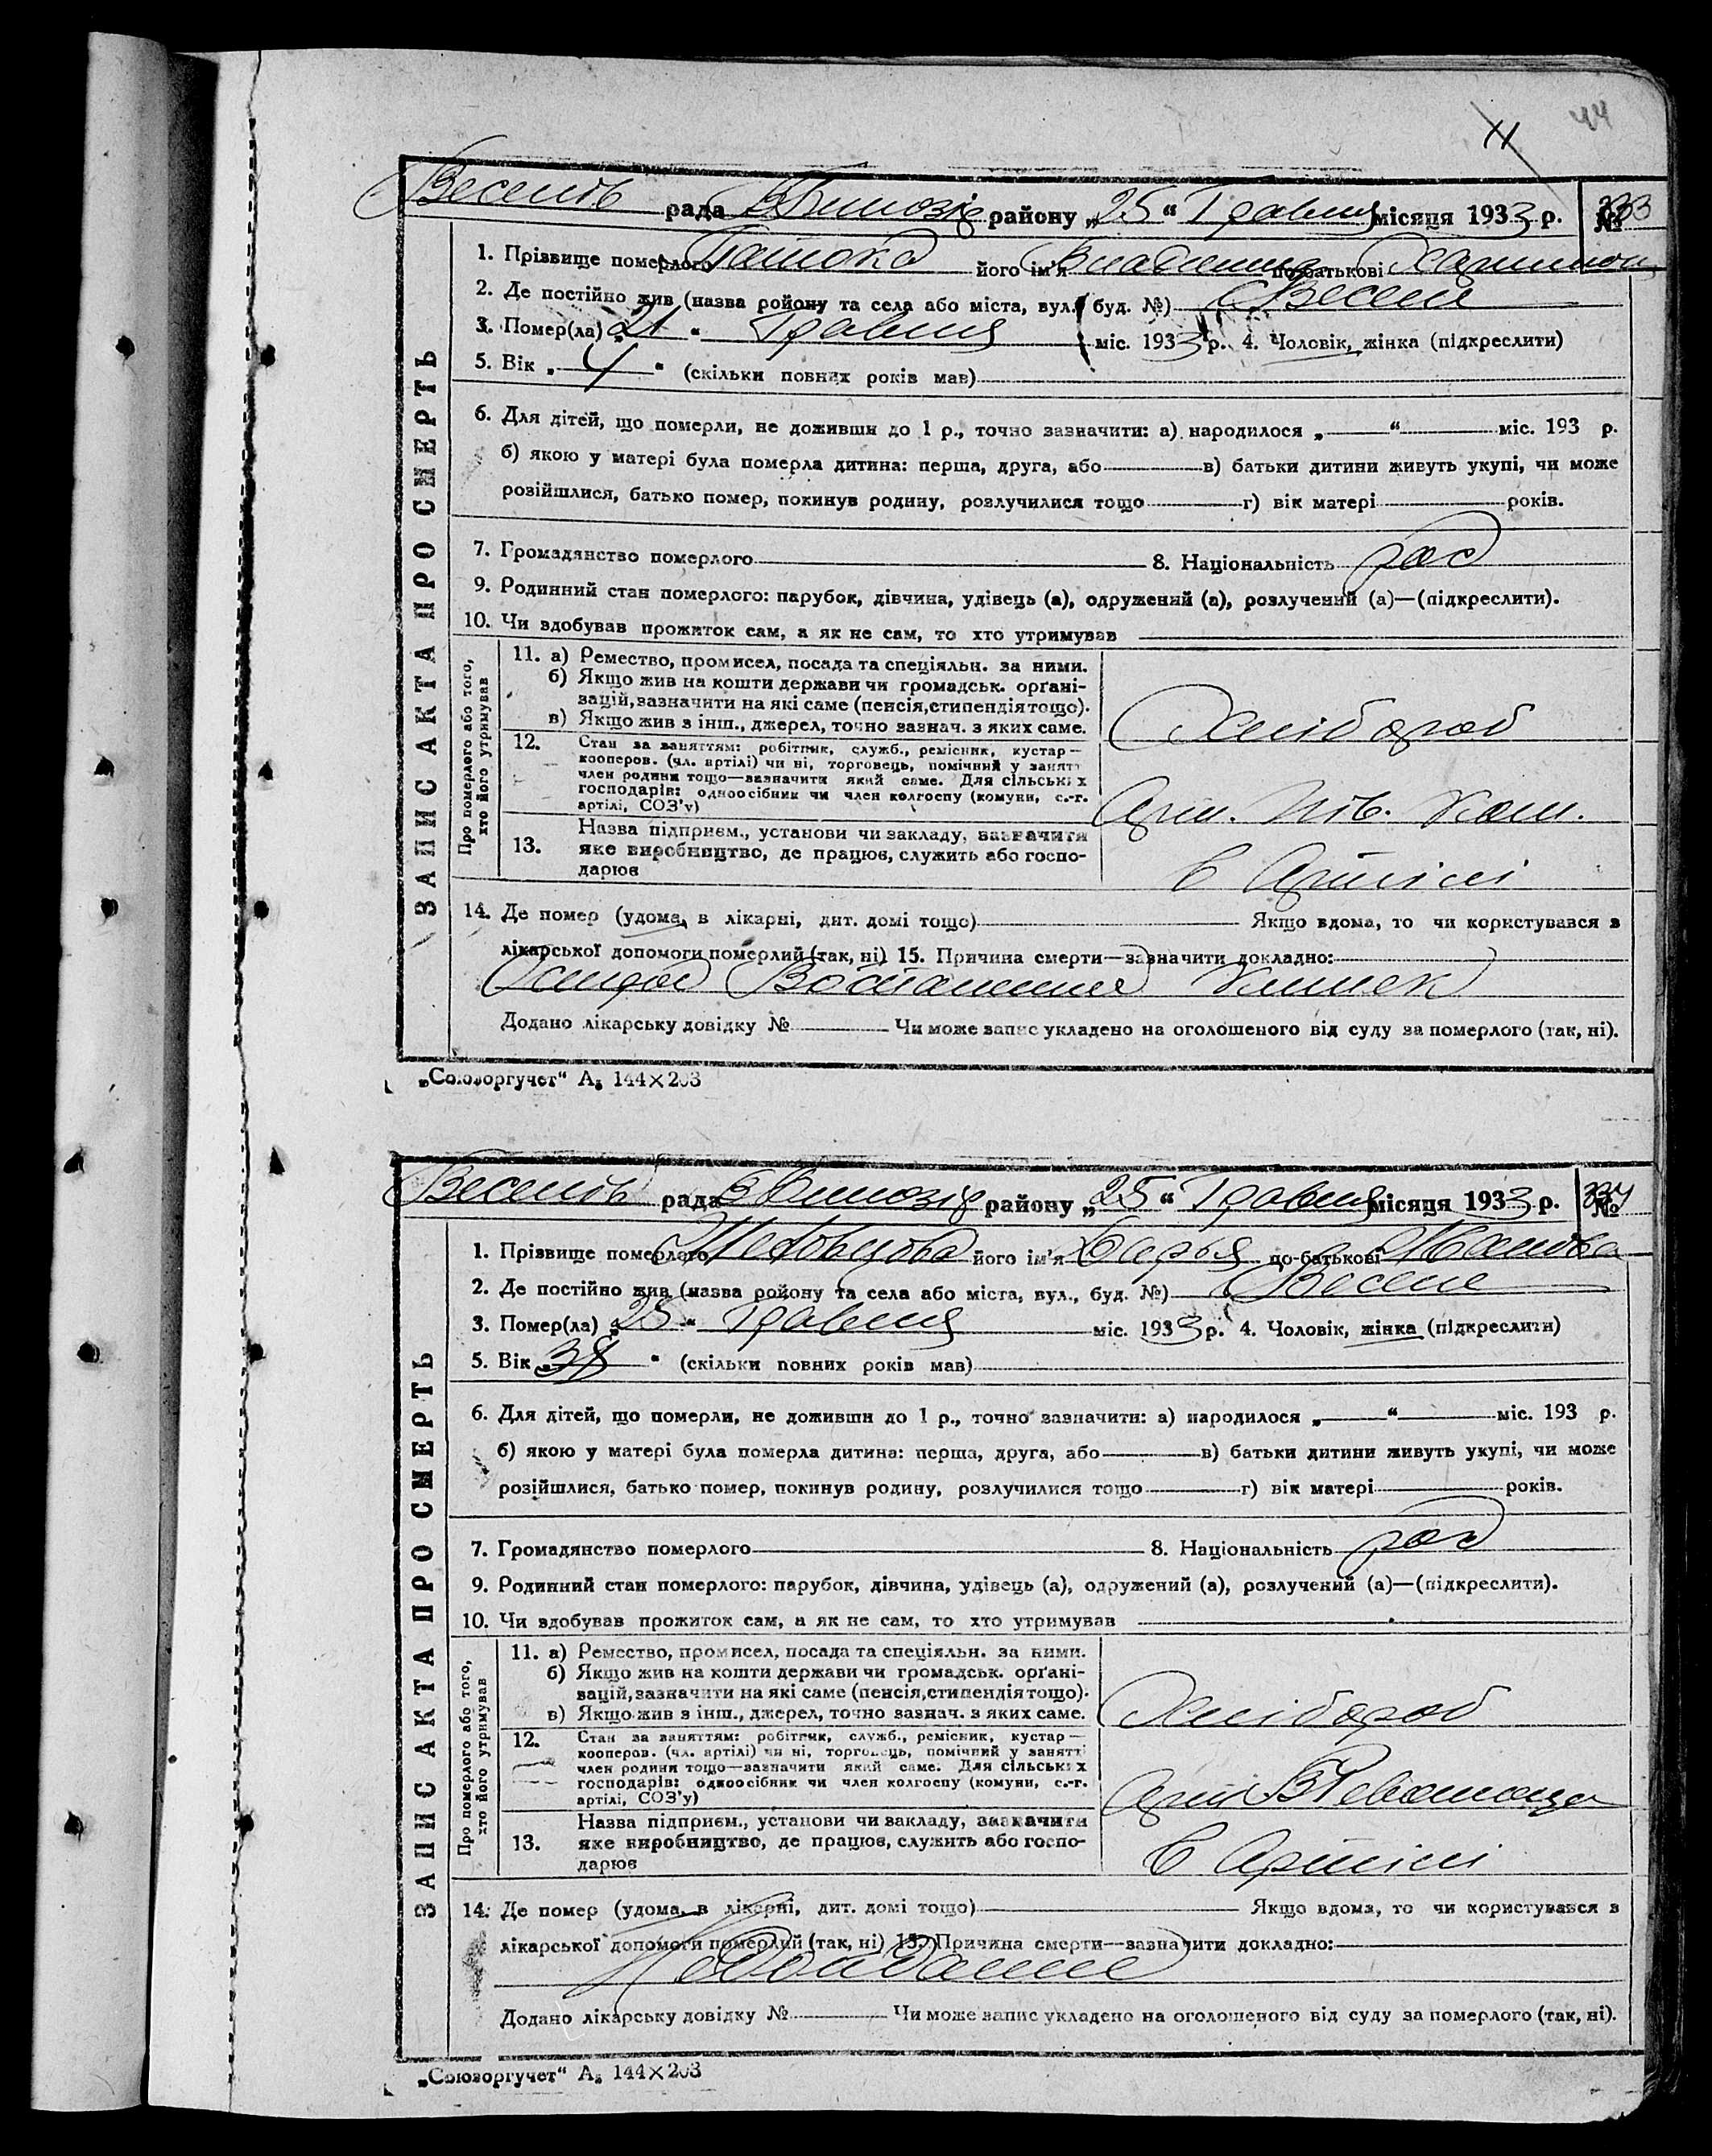 44
11
рада району „25“ Травня місяця 1933 р. № 333
ЗАПИС АКТА ПРО СМЕРТЬ
1. Прізвище померлого його ім'я по-батькові
2. Де постійно жив (назва району та села або міста, вул., буд. №) с Веселе
3. Помер(ла) „21“ Травня міс. 1933 р. 4. Чоловік, жінка (підкреслити)
5. Вік „4“ (скільки повних років мав)
6. Для дітей, що померли, не доживши до 1 р., точно зазначити: а) народилося „ “ міс. 193 р.
б) якою у матері була померла дитина: перша, друга, або в) батьки дитини живуть укупі, чи може
розійшлися, батько помер, покинув родину, розлучилися тощо г) вік матері років.
7. Громадянство померлого 8. Національність рос
9. Родинний стан померлого: парубок, дівчина, удівець (а), одружений (а), розлучений (а)—(підкреслити).
10. Чи здобував прожиток сам, а як не сам, то хто утримував
Про померлого або того, хто його утримував
11. а) Ремество, промисел, посада та спеціяльн. за ними.
б) Якщо жив на кошти держави чи громадськ. орґані-
зацій, зазначити на які саме (пенсія, стипендія тощо).
в) Якщо жив з інш., джерел, точно зазнач. з яких саме.
Хлібороб
12. Стан за заняттям: робітник, служб., ремісник, кустар—
кооперов. (чл. артілі) чи ні, торговець, помічний у занятт
член родини тощо—зазначити який саме. Для сільських
господарів: одноосібник чи член колгоспу (комуни, с.-г.
артілі, СОЗ'у)
13. Назва підприєм., установи чи закладу, зазначити
яке виробництво, де працює, служить або госпо-
дарює
в Артілі
14. Де помер (удома, в лікарні, дит. домі тощо) Якщо вдома, то чи користувався з
лікарської допомоги померлий (так, ні) 15. Причина смерти—зазначити докладно:
Воспаление Кишек
Додано лікарську довідку № Чи може запис укладено на оголошеного від суду за померлого (так, ні).
„Союзоргучет“ А₅ 144×203
рада району „25“ Травня місяця 1933 р. № 334
ЗАПИС АКТА ПРО СМЕРТЬ
1. Прізвище померлого його ім'я Дарья по-батькові
2. Де постійно жив (назва району та села або міста, вул., буд. №) с Веселе
3. Помер(ла) „25“ Травня міс. 1933 р. 4. Чоловік, жінка (підкреслити)
5. Вік „38“ (скільки повних років мав)
6. Для дітей, що померли, не доживши до 1 р., точно зазначити: а) народилося „ “ міс. 193 р.
б) якою у матері була померла дитина: перша, друга, або в) батьки дитини живуть укупі, чи може
розійшлися, батько помер, покинув родину, розлучилися тощо г) вік матері років.
7. Громадянство померлого 8. Національність рос
9. Родинний стан померлого: парубок, дівчина, удівець (а), одружений (а), розлучений (а)—(підкреслити).
10. Чи здобував прожиток сам, а як не сам, то хто утримував
Про померлого або того, хто його утримував
11. а) Ремество, промисел, посада та спеціяльн. за ними.
б) Якщо жив на кошти держави чи громадськ. орґані-
зацій, зазначити на які саме (пенсія, стипендія тощо).
в) Якщо жив з інш., джерел, точно зазнач. з яких саме.
Хлібороб
12. Стан за заняттям: робітник, служб., ремісник, кустар—
кооперов. (чл. артілі) чи ні, торговець, помічний у занятті
член родини тощо—зазначити який саме. Для сільських
господарів: одноосібник чи член колгоспу (комуни, с.-г.
артілі, СОЗ'у)
13. Назва підприєм., установи чи закладу, зазначити
яке виробництво, де працює, служить або госпо-
дарює
в Артілі
14. Де помер (удома, в лікарні, дит. домі тощо) Якщо вдома, то чи користувався з
лікарської допомоги померлий (так, ні) 15. Причина смерти—зазначити докладно:
Недоїдание
Додано лікарську довідку № Чи може запис укладено на оголошеного від суду за померлого (так, ні).
„Союзоргучет“ А₅ 144×203